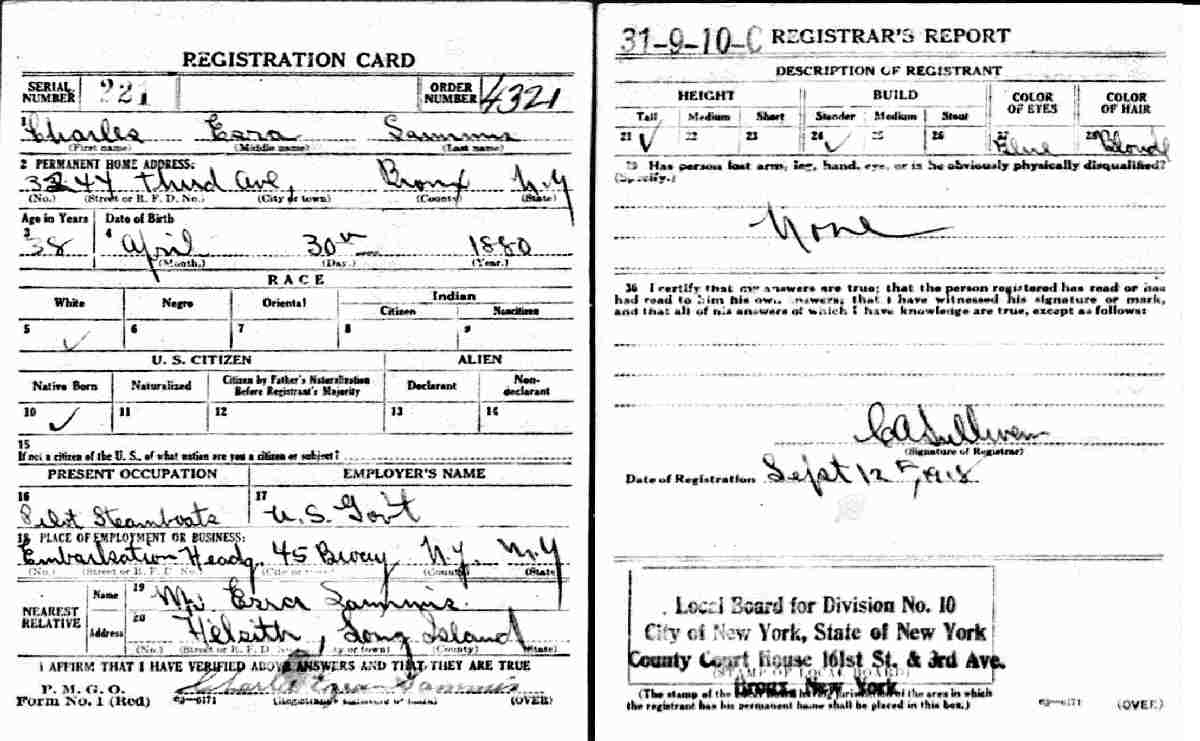 REGISTRATION CARD
SERIAL NUMBER 221 ORDER NUMBER 4321
1 Charles Ezra Sammis
(First name) (Middle name) (Last name)
2 PERMANENT HOME ADDRESS:
3244 Third Ave, Bronx N.Y
(No.) (Street or R. F. D. No.) (City or town) (County) (State)
Age in Years Date of Birth
3 38 4 April 30th 1880
(Month.) (Day.) (Year.)
RACE
White Negro Oriental Indian
Citizen Noncitizen
5 ✓ 6 7 8 9
U. S. CITIZEN ALIEN
Native Born Naturalized Citizen by Father's Naturalization Before Registrant's Majority Declarant Non-declarant
10 ✓ 11 12 13 14
15
If not a citizen of the U. S., of what nation are you a citizen or subject?
PRESENT OCCUPATION EMPLOYER'S NAME
16 Pilot Steamboats 17 U.S. Gov't
18 PLACE OF EMPLOYMENT OR BUSINESS:
Embarkation Headq. 45 Bway N.Y. N.Y
(No.) (Street or R. F. D. No.) (City or town) (County) (State)
NEAREST RELATIVE
Name 19 Mr. Ezra Sammis
Address 20 Long Island
(No.) (Street or R. F. D. No.) (City or town) (County) (State)
I AFFIRM THAT I HAVE VERIFIED ABOVE ANSWERS AND THAT THEY ARE TRUE
P. M. G. O.
Form No. 1 (Red) Charles Ezra Sammis
(Registrant's signature or mark) (OVER)
31-9-10-C REGISTRAR'S REPORT
DESCRIPTION OF REGISTRANT
HEIGHT BUILD COLOR OF EYES COLOR OF HAIR
Tall Medium Short Slender Medium Stout
21 ✓ 22 23 24 ✓ 25 26 27 Blue 28 Blonde
29 Has person lost arm, leg, hand, eye, or is he obviously physically disqualified?
(Specify.)
None
30 I certify that my answers are true; that the person registered has read or has
had read to him his own answers; that I have witnessed his signature or mark,
and that all of his answers of which I have knowledge are true, except as follows:
C A Sullivan
(Signature of Registrar)
Date of Registration Sept 12th, 1918
Local Board for Division No. 10
City of New York, State of New York
County Court House 161st St. & 3rd Ave.
(STAMP OF LOCAL BOARD)
Bronx, New York
(The stamp of the Local Board having jurisdiction of the area in which
the registrant has his permanent home shall be placed in this box.)
63-6171 (OVER)